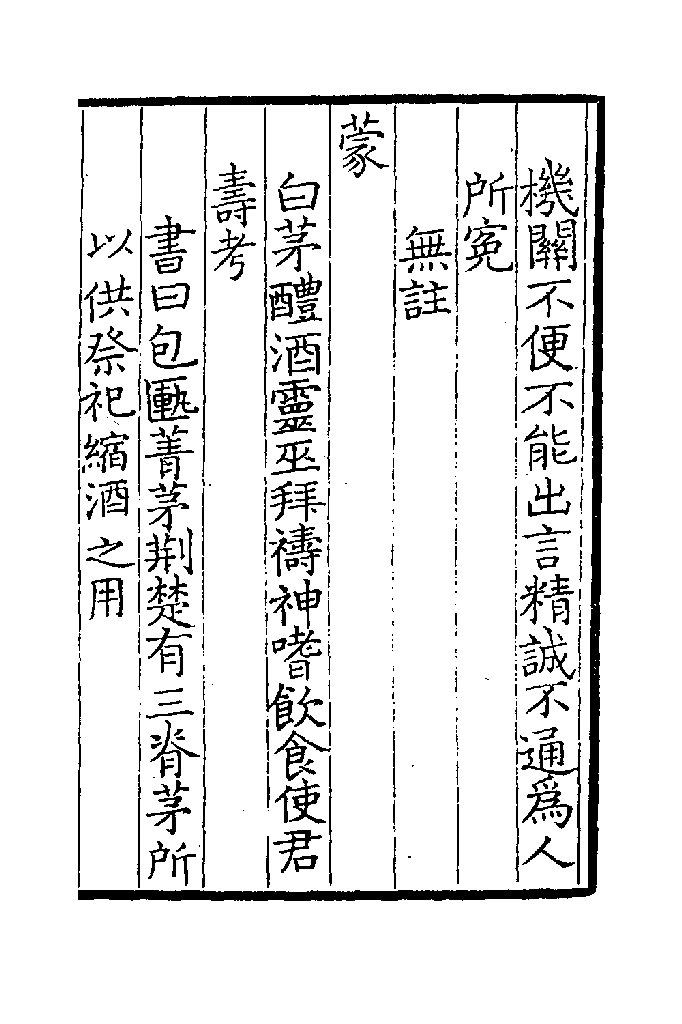 機關不便不能出言精誠不通爲人
所寃
無註
蒙
白茅醴酒靈巫拜禱神嗜飲食使君
壽考
書曰包匭菁茅荆楚有三脊茅所
以供祭祀縮酒之用